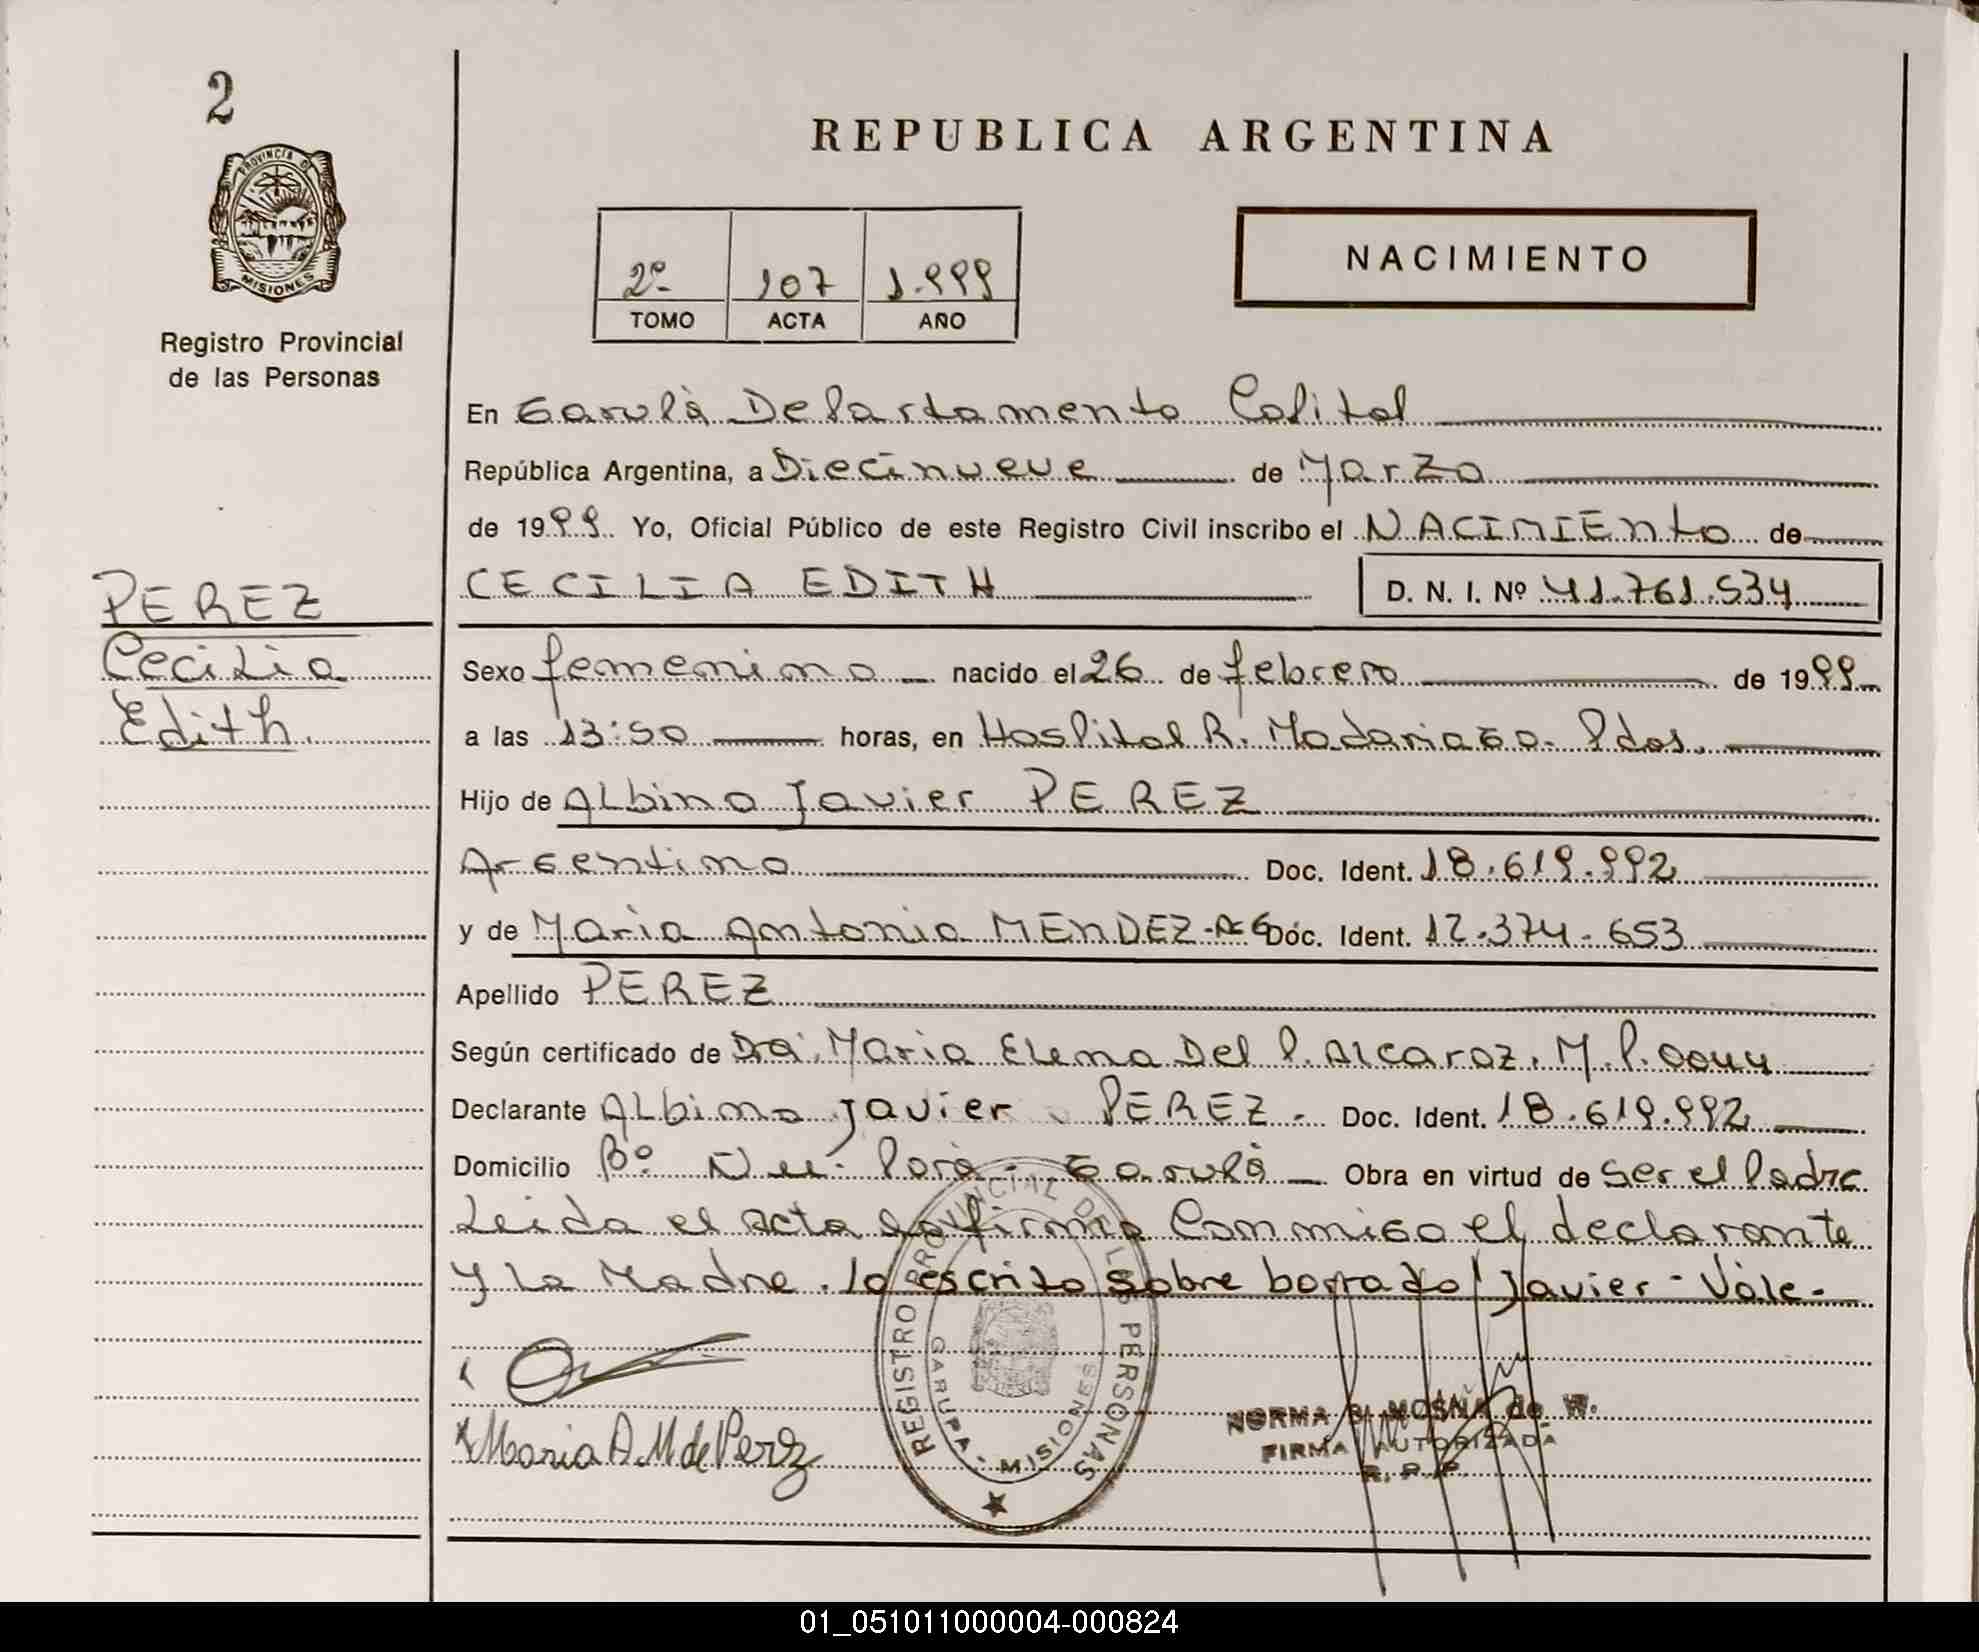 2
PROVINCIA DE
MISIONES
Registro Provincial
de las Personas
PEREZ
Cecilia
Edith.
REPUBLICA ARGENTINA
2º 107 1.999
TOMO ACTA AÑO
NACIMIENTO
En Garupà Departamento Capital
República Argentina, a Diecinueve de Marzo
de 1999. Yo, Oficial Público de este Registro Civil inscribo el NACIMIENto de
CECILIA EDITH D. N. I. Nº 41.761.534
Sexo femenino nacido el 26 de febrero de 1999
a las 13:50 horas, en Hospital R. Madariaga. Pdas.
Hijo de Albino Javier PEREZ
Argentino Doc. Ident. 18.619.992
y de Maria Antonia MENDEZ-ArG Doc. Ident. 12.374.653
Apellido PEREZ
Según certificado de Dra. Maria Elena Del P. Alcaraz. M.P. 0044
Declarante Albino Javier PEREZ - Doc. Ident. 18.619.992
Domicilio Bº Ñu - Porà - Garupà Obra en virtud de Ser el Padre
Leida el Acta la firma Conmigo el declarante
y La Madre. lo escrito sobre borrado "Javier - Vale -
Maria A. M de Perez
REGISTRO PROVINCIAL DE LAS PERSONAS
GARUPA - MISIONES
NORMA B. MOSÑA de W.
FIRMA AUTORIZADA
R. P. P.
01_051011000004-000824